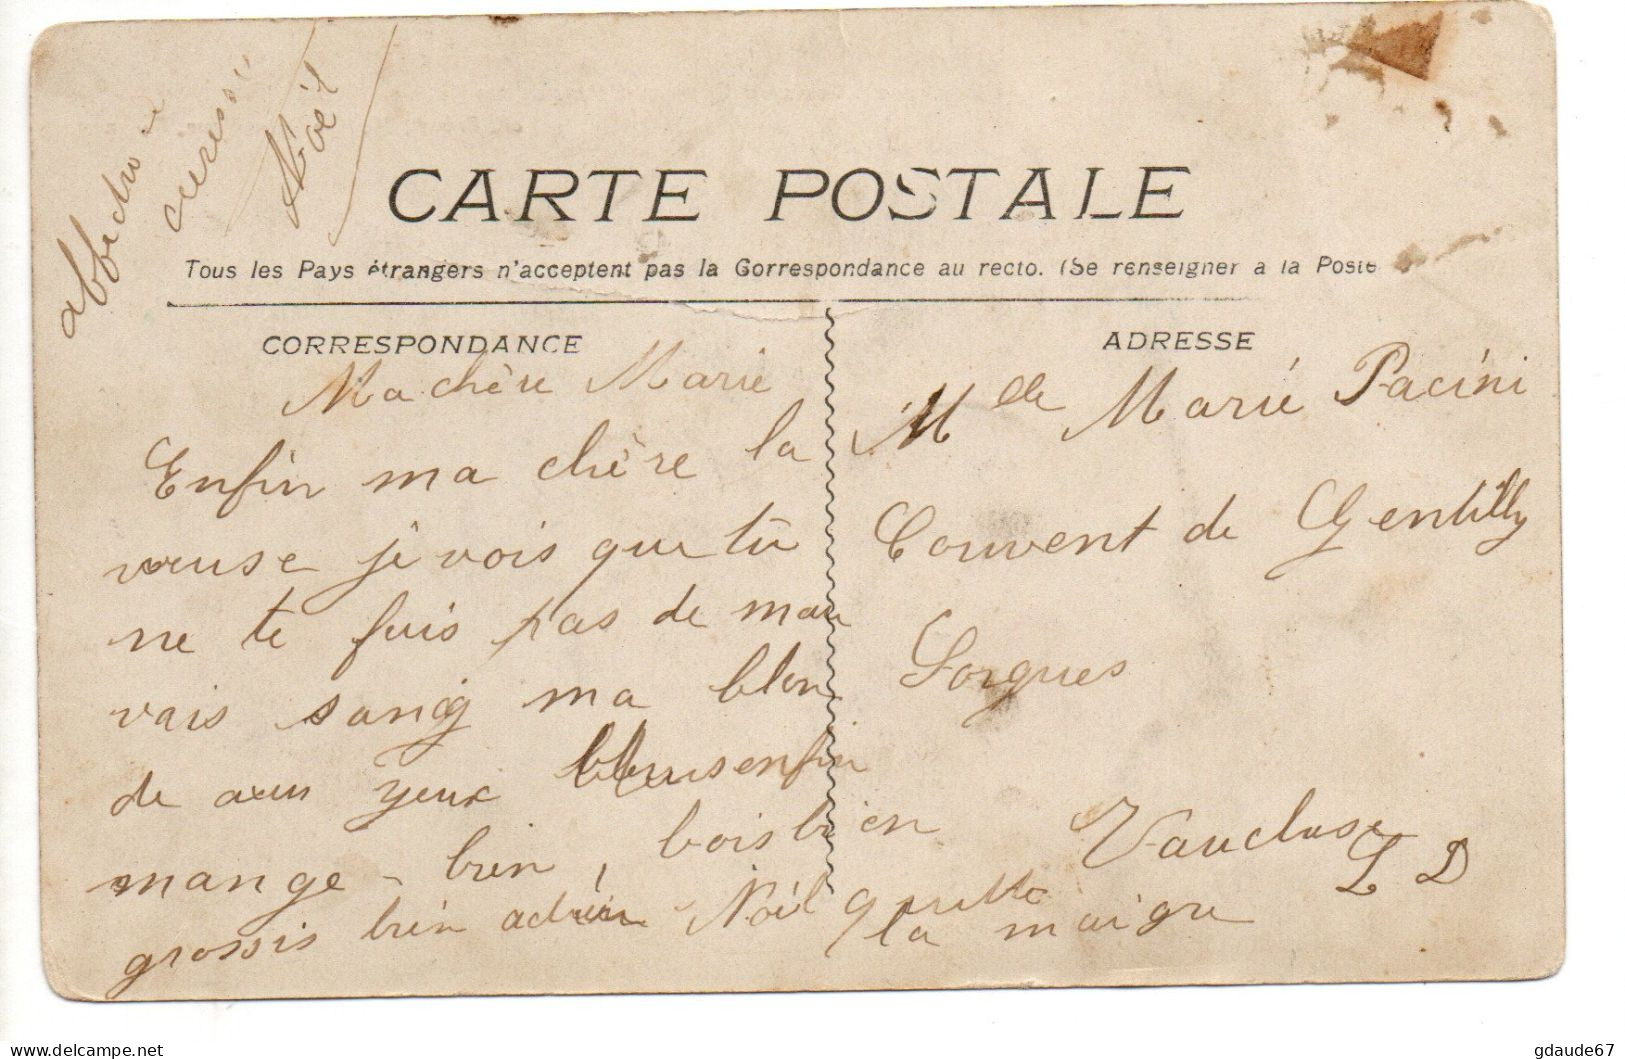 caresse
Noël
CARTE POSTALE
Tous les Pays étrangers n'acceptent pas la Correspondance au recto. (Se renseigner à la Poste
CORRESPONDANCE
Ma chère Marie
Enfin ma chère la
veuse je vois que tu
ne te fais pas de mau
vais sang ma blon
de aux yeux bleus enfin
mange - bien, bois bien
grossis bien adieu Noël quitte
la maigre
ADRESSE
Mlle Marie Pacini
Couvent de Gentilly
Sorgues
Vaucluse
L D
Delcampe.net
gdaude67